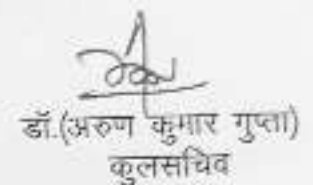 डॉ.(अरुण कुमार गुप्ता)
कुलसचिव